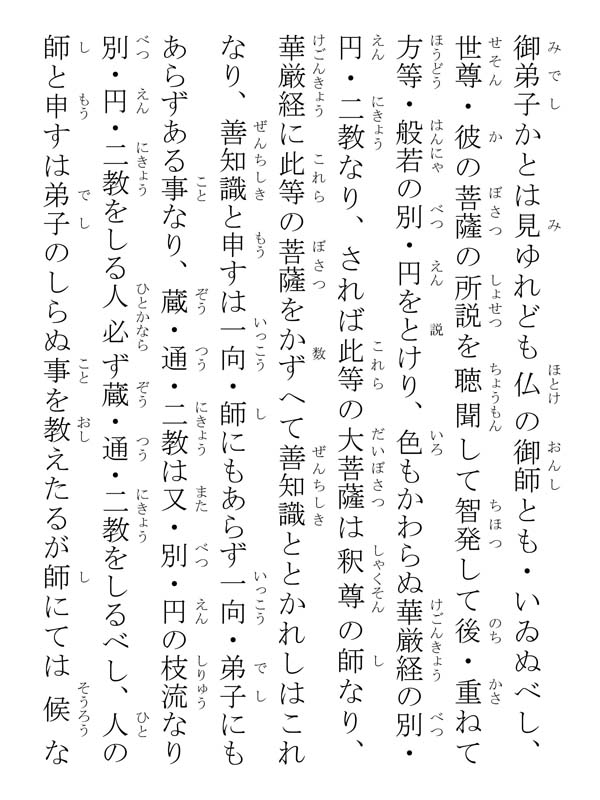 御弟子かとは見ゆれども仏の御師とも・いゐぬべし、
世尊・彼の菩薩の所説を聴聞して智発して後・重ねて
方等・般若の別・円をとけり、色もかわらぬ華厳経の別・
円・二教なり、されば此等の大菩薩は釈尊の師なり、
華厳経に此等の菩薩をかずへて善知識ととかれしはこれ
なり、善知識と申すは一向・師にもあらず一向・弟子にも
あらずある事なり、蔵・通・二教は又・別・円の枝流なり
別・円・二教をしる人必ず蔵・通・二教をしるべし、人の
師と申すは弟子のしらぬ事を教えたるが師にては候な